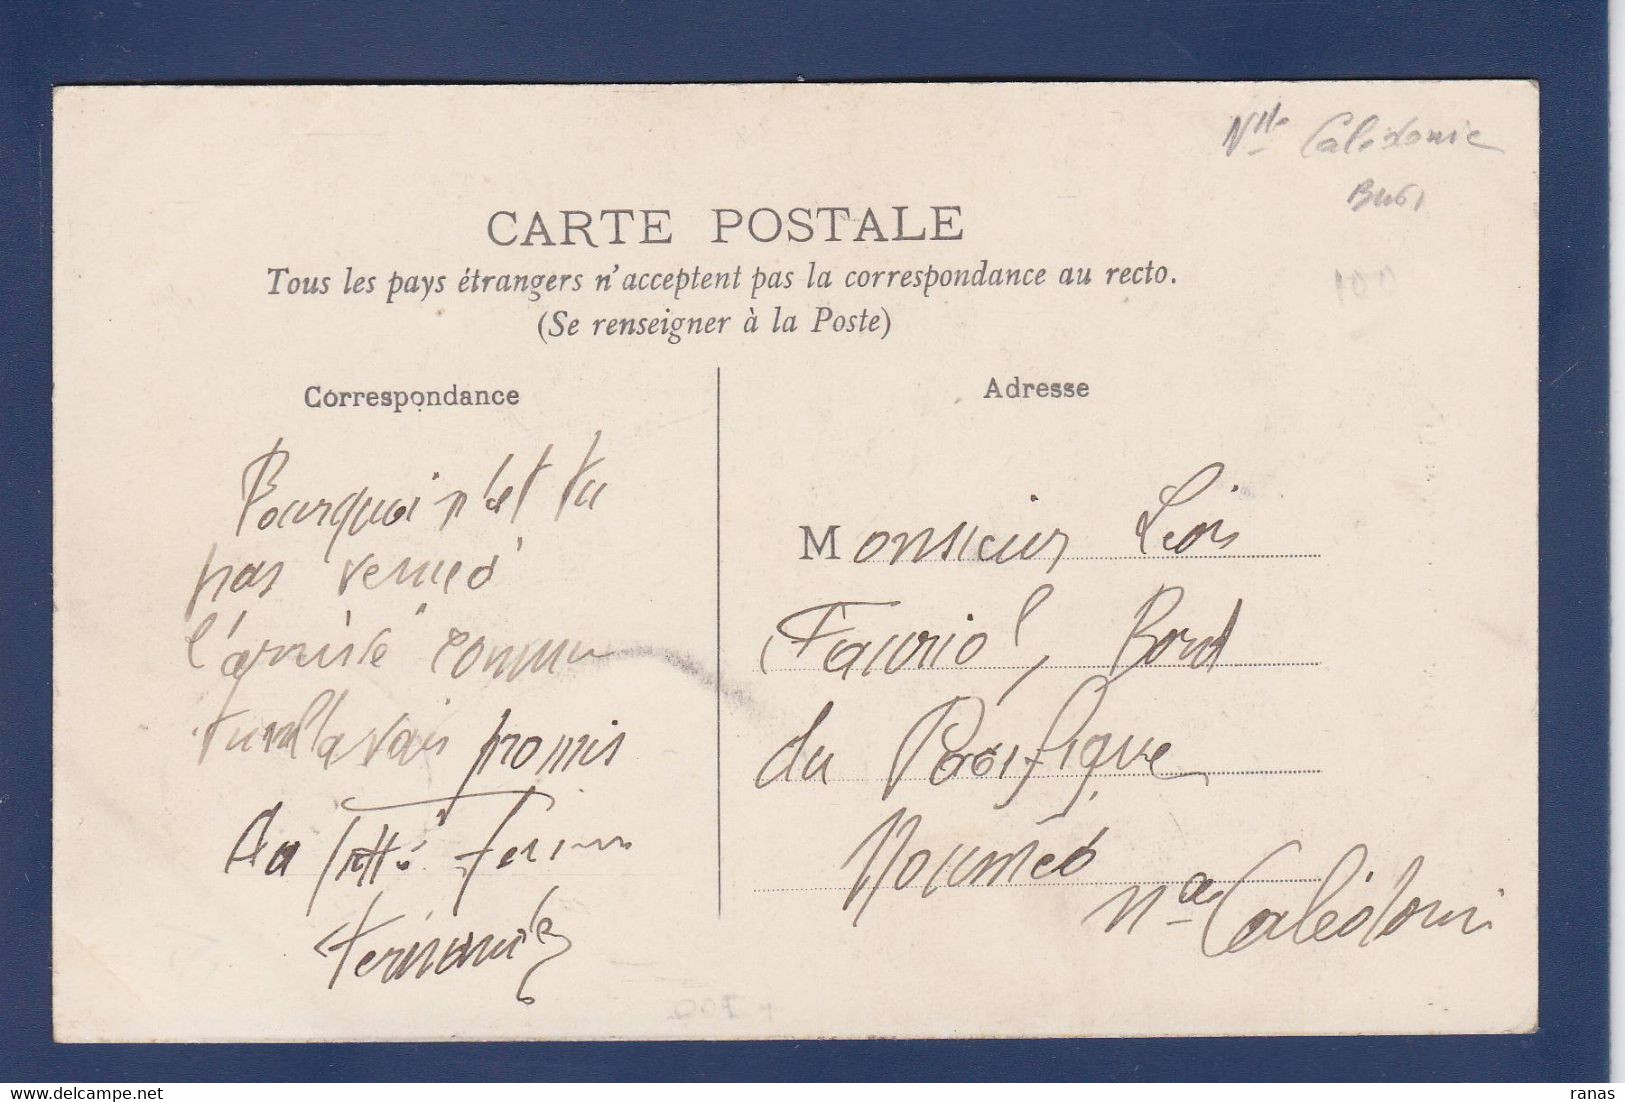 Nlle Calédonie
CARTE POSTALE
Tous les pays étrangers n'acceptent pas la correspondance au recto.
(Se renseigner à la Poste)
Correspondance
Adresse
Pourquoi n'et tu
pas venu à
l'arrivée comme
tu l'avais promis
Ta
Fernand
Monsieur Léon
Fauriol, Bord
du Pasifique
Nouméa
Nlle Calédoni
+ 700
ranas